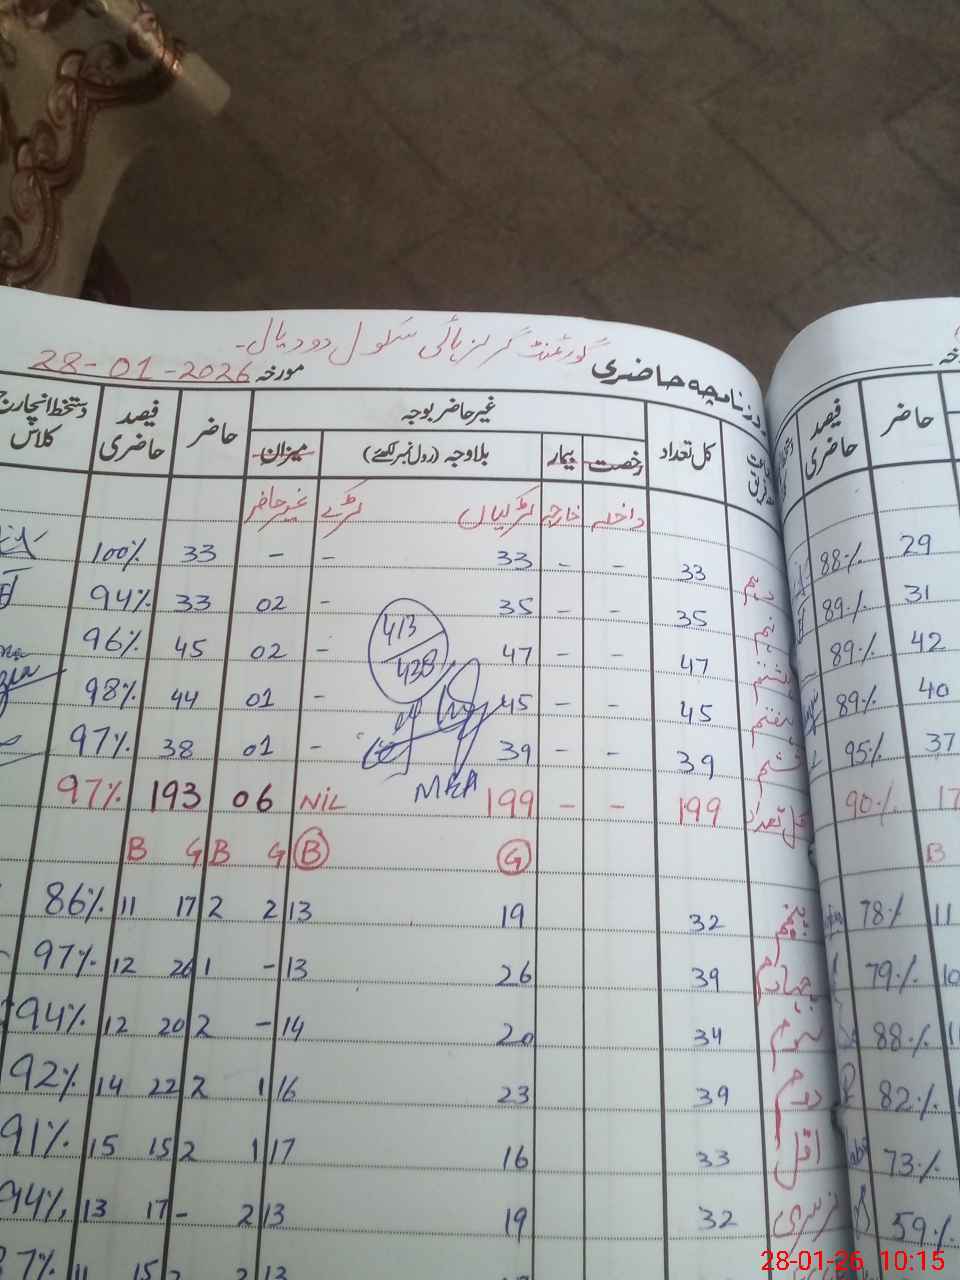 گورنمنٹ گرلز ہائی سکول دودیال۔
روزنامچہ حاضری مورخہ 28-01-2026
کل تعداد غیر حاضر بوجہ حاضر فیصد حاضری دستخط انچارج کلاس
رخصت بیمار بلاوجہ (رول نمبر لکھئے) میزان
داخلہ خارجہ لڑکیاں لڑکے غیر حاضر
دہم 33 - - 33 - - 33 100%
نہم 35 - - 35 - 02 33 94%
ہشتم 47 - - 47 - 02 45 96%
ہفتم 45 - 45 - 01 44 98%
ششم 39 - - 39 - 01 38 97%
413
438
MEA
کل تعداد 199 - - 199 NIL 06 193 97%
G B G B G B
پنجم 32 19 13 2 2 17 11 86%
چہارم 39 26 13 - 1 26 12 97%
سوم 34 20 14 - 2 20 12 94%
دوم 39 23 16 1 2 22 14 92%
اول 33 16 17 1 2 15 15 91%
نرسری 32 19 13 2 - 17 13 94%
13 2 2 15 11
حاضر فیصد حاضری
29 88%
31 89%
42 89%
40 89%
37 95%
17 90%
B
11 78%
10 79%
88%
82%
73%
59%
28-01-26 10:15